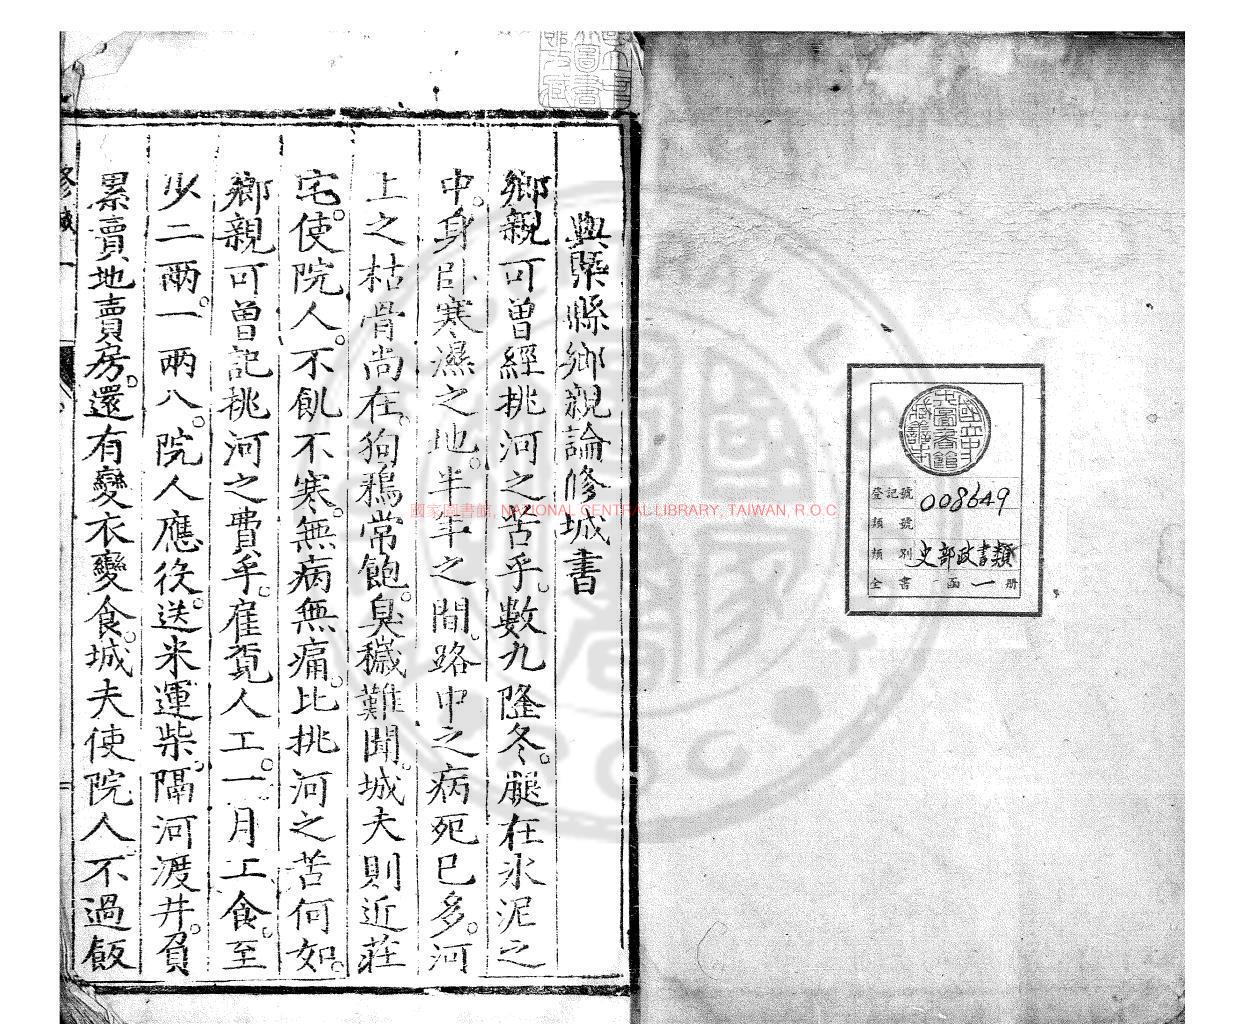 登記號 008649
類號
類別 史部政書類
全書 函一册
與槩縣鄉親論修城書
鄉親可曾經挑河之苦乎。數九隆冬。腿在氷泥之
中。身卧寒濕之地。半年之間。路中之病死已多。河
上之枯骨尚在。狗鴉常飽。臭穢難聞。城夫則近莊
宅。使院人。不飢不寒。無病無痛。比挑河之苦何如。
鄉親可曾記挑河之費乎。雇覔人工。一月工食。至
少二兩。一兩八。院人應役。送米運柴。隔河渡井。負
累賣地賣房。還有變衣變食。城夫使院人不過飯
修城 一
國家圖書館, NATIONAL CENTRAL LIBRARY, TAIWAN, R.O.C